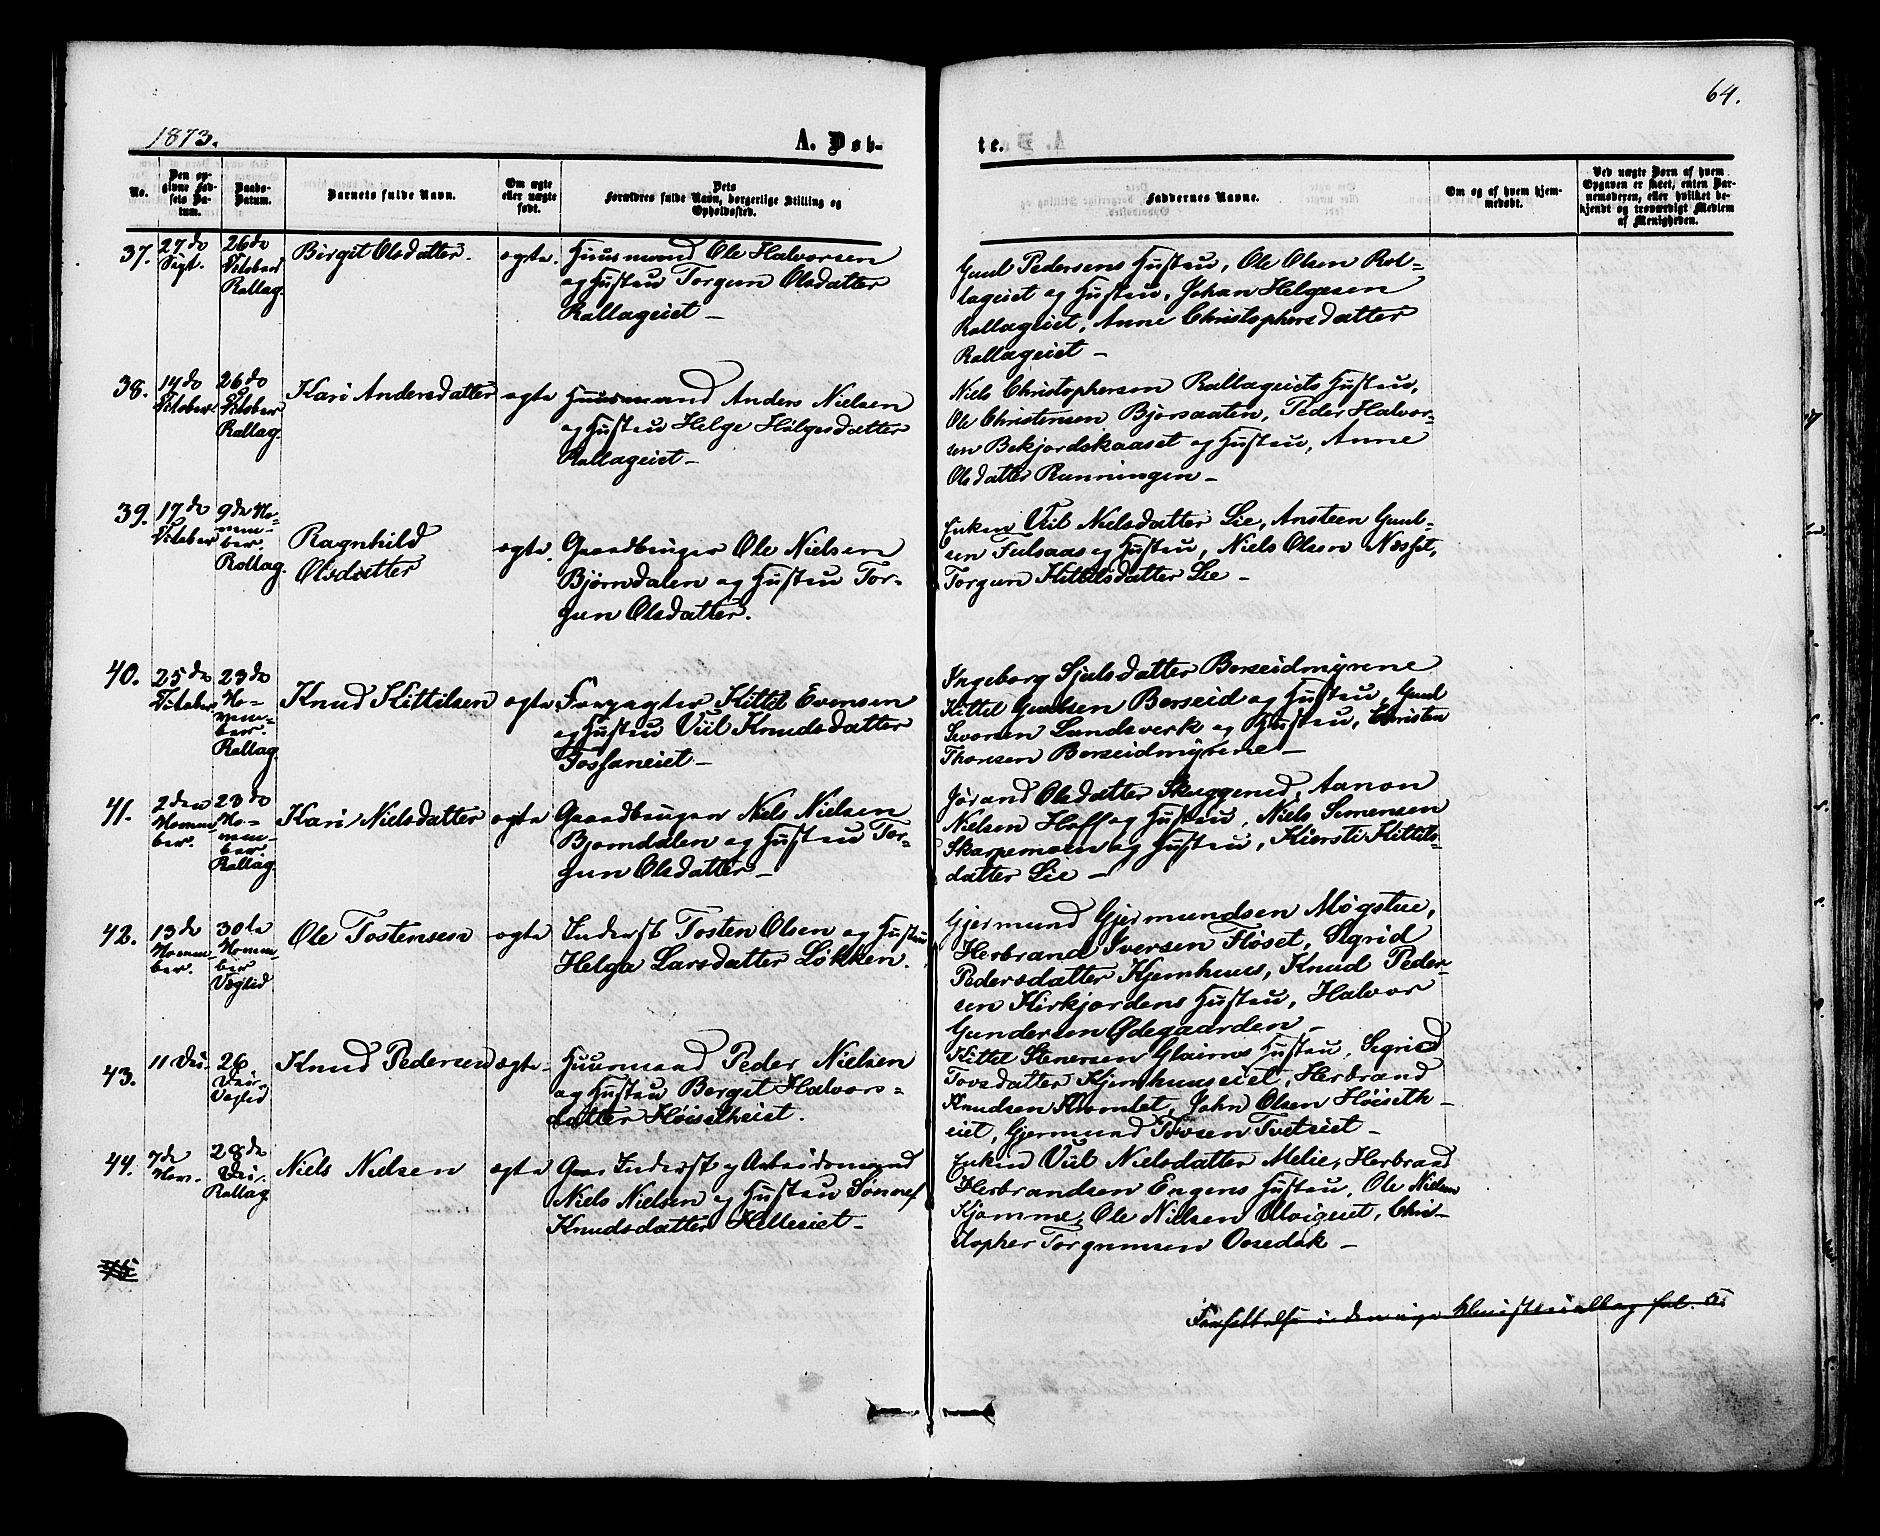 64.
1873.
A. Døb-
te.
No.
Den op-
givne Fød-
sels Da-
tum.
Daabs-
Datum.
Barnets fulde Navn.
Om ægte
eller uægte
født.
Dets
Forældres fulde Navn, borgerlige Stilling og
Opholdssted.
Faddernes Navne.
Om og af hvem hjem-
medøbt.
Ved uægte Børn af hvem
Opgaven er skeet, enten Bar-
nemoderen, eller hvilket be-
kjendt og troværdigt Medlem
af Menigheden.
37.
27de
Sept.
26de
October
Rollag.
Birgit Olsdatter.
ægte.
Huusmand Ole Halvorsen
og Hustru Torgun Olsdatter
Rollageiet –
Gunl Pedersens Hustru, Ole Olsen Rol-
lageiet og Hustru, Johan Helgesen
Rollageiet, Anne Christophersdatter
Rollageiet –
38.
14de
October
26de
October
Rollag.
Kari Andersdatter
ægte
Huusmand Anders Nielsen
og Hustru Helge Helgesdatter
Rollageiet –
Niels Christophersen Rollageiets Hustru,
Ole Christensen Bjørsaaten, Peder Halvor-
sen Bekjordskaaset og Hustru, Anne
Olsdatter Runningen –
39.
17de
October
9de No-
vem-
ber.
Rollag.
Ragnhild
Olsdatter
ægte.
Gaardbruger Ole Nielsen
Bjørndalen og Hustru Tor-
gun Olsdatter.
Enken Viil Nielsdatter Lie, Ansteen Gunl-
sen Fulsaas og Hustru, Niels Olsen Næsset,
Torgun Kittilsdatter Lie –
40.
25de
October
23de
No-
vem-
ber.
Rollag
Knud Kittilsen
ægte
Forpagter Kittil Evensen
og Hustru Viil Knudsdatter
Fosfaneiet –
Ingeborg Sjulsdatter Borseidmyrene
Kittil Gunlsen Borseid og Hustru, Gunl
Sworsen Landsverk og Hustru, Christen
Thorsen Borseidmyrene –
41.
2den
Novem-
ber.
23de
No-
vem-
ber.
Rollag.
Kari Nielsdatter
ægte
Gaardbruger Niels Nielsen
Bjorndalen og Hustru Tor-
gun Olsdatter –
Jørand Olsdatter Skuggerud, Aanon
Nielsen Hoff og Hustru, Niels Simensen
Skarpemoen og Hustru, Kiersti Kittils-
datter Lie –
42.
13de
Novem-
ber.
30te
Novem-
ber
Veglid
Ole Tostensen
ægte
Inderst Tosten Olsen og Hustru
Helga Larsdatter Løkken.
Gjermund Gjermundsen Møgstue,
Herbrand Iversen Fløset, Sigrid
Pedersdatter Kjemhuus, Knud Peder-
sen Kirkjordens Hustru, Halvor
Gundersen Ødegaarden –
43.
11 Dec.
26
Dec.
Veglid
Knud Pedersen
ægte
Huusmand Peder Nielsen
og Hustru Bergit Halvors-
datter Høisetheiet.
Kittil Stenersen Glaims Hustru, Sigrid
Tovsdatter Kjemhuuseiet, Herbrand
Knudsen Kvomlet, John Olsen Høiseth-
eiet, Gjermund Tovsen Tveteiet –
44.
7de
Nov.
28de
Dec.
Rollag
Niels Nielsen
ægte
Inderst og Arbeidsmand
Niels Nielsen og Hustru Sønnef
Knudsdatter Helleeiet –
Enken Viil Nielsdatter Melie, Herbrand
Herbrandsen Engens Hustru, Ole Nielsen
Kjomme, Ole Nielsen Ulvigeiet, Chri-
stopher Torgrimsen Vosedak –
45
Fortsettelse i den nye Ministerialbog fol.